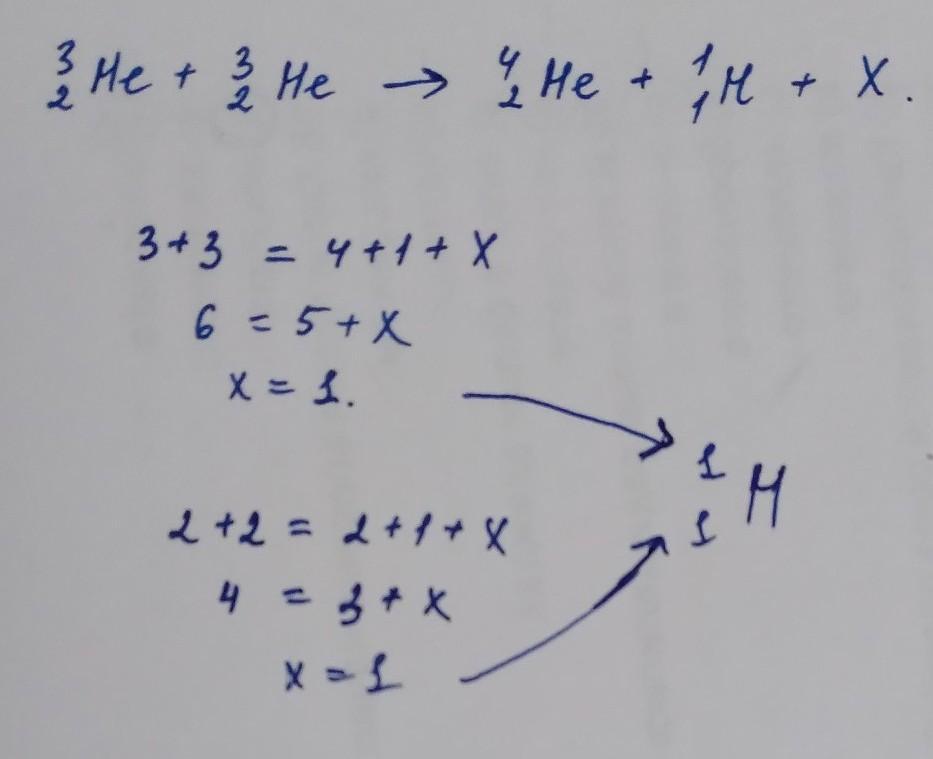 ³₂He + ³₂He → ⁴₂He + ¹₁H + X.
3+3 = 4+1+X
6 = 5+X
x = 1.
¹₁H
2+2 = 2+1+X
4 = 3+x
x = 1